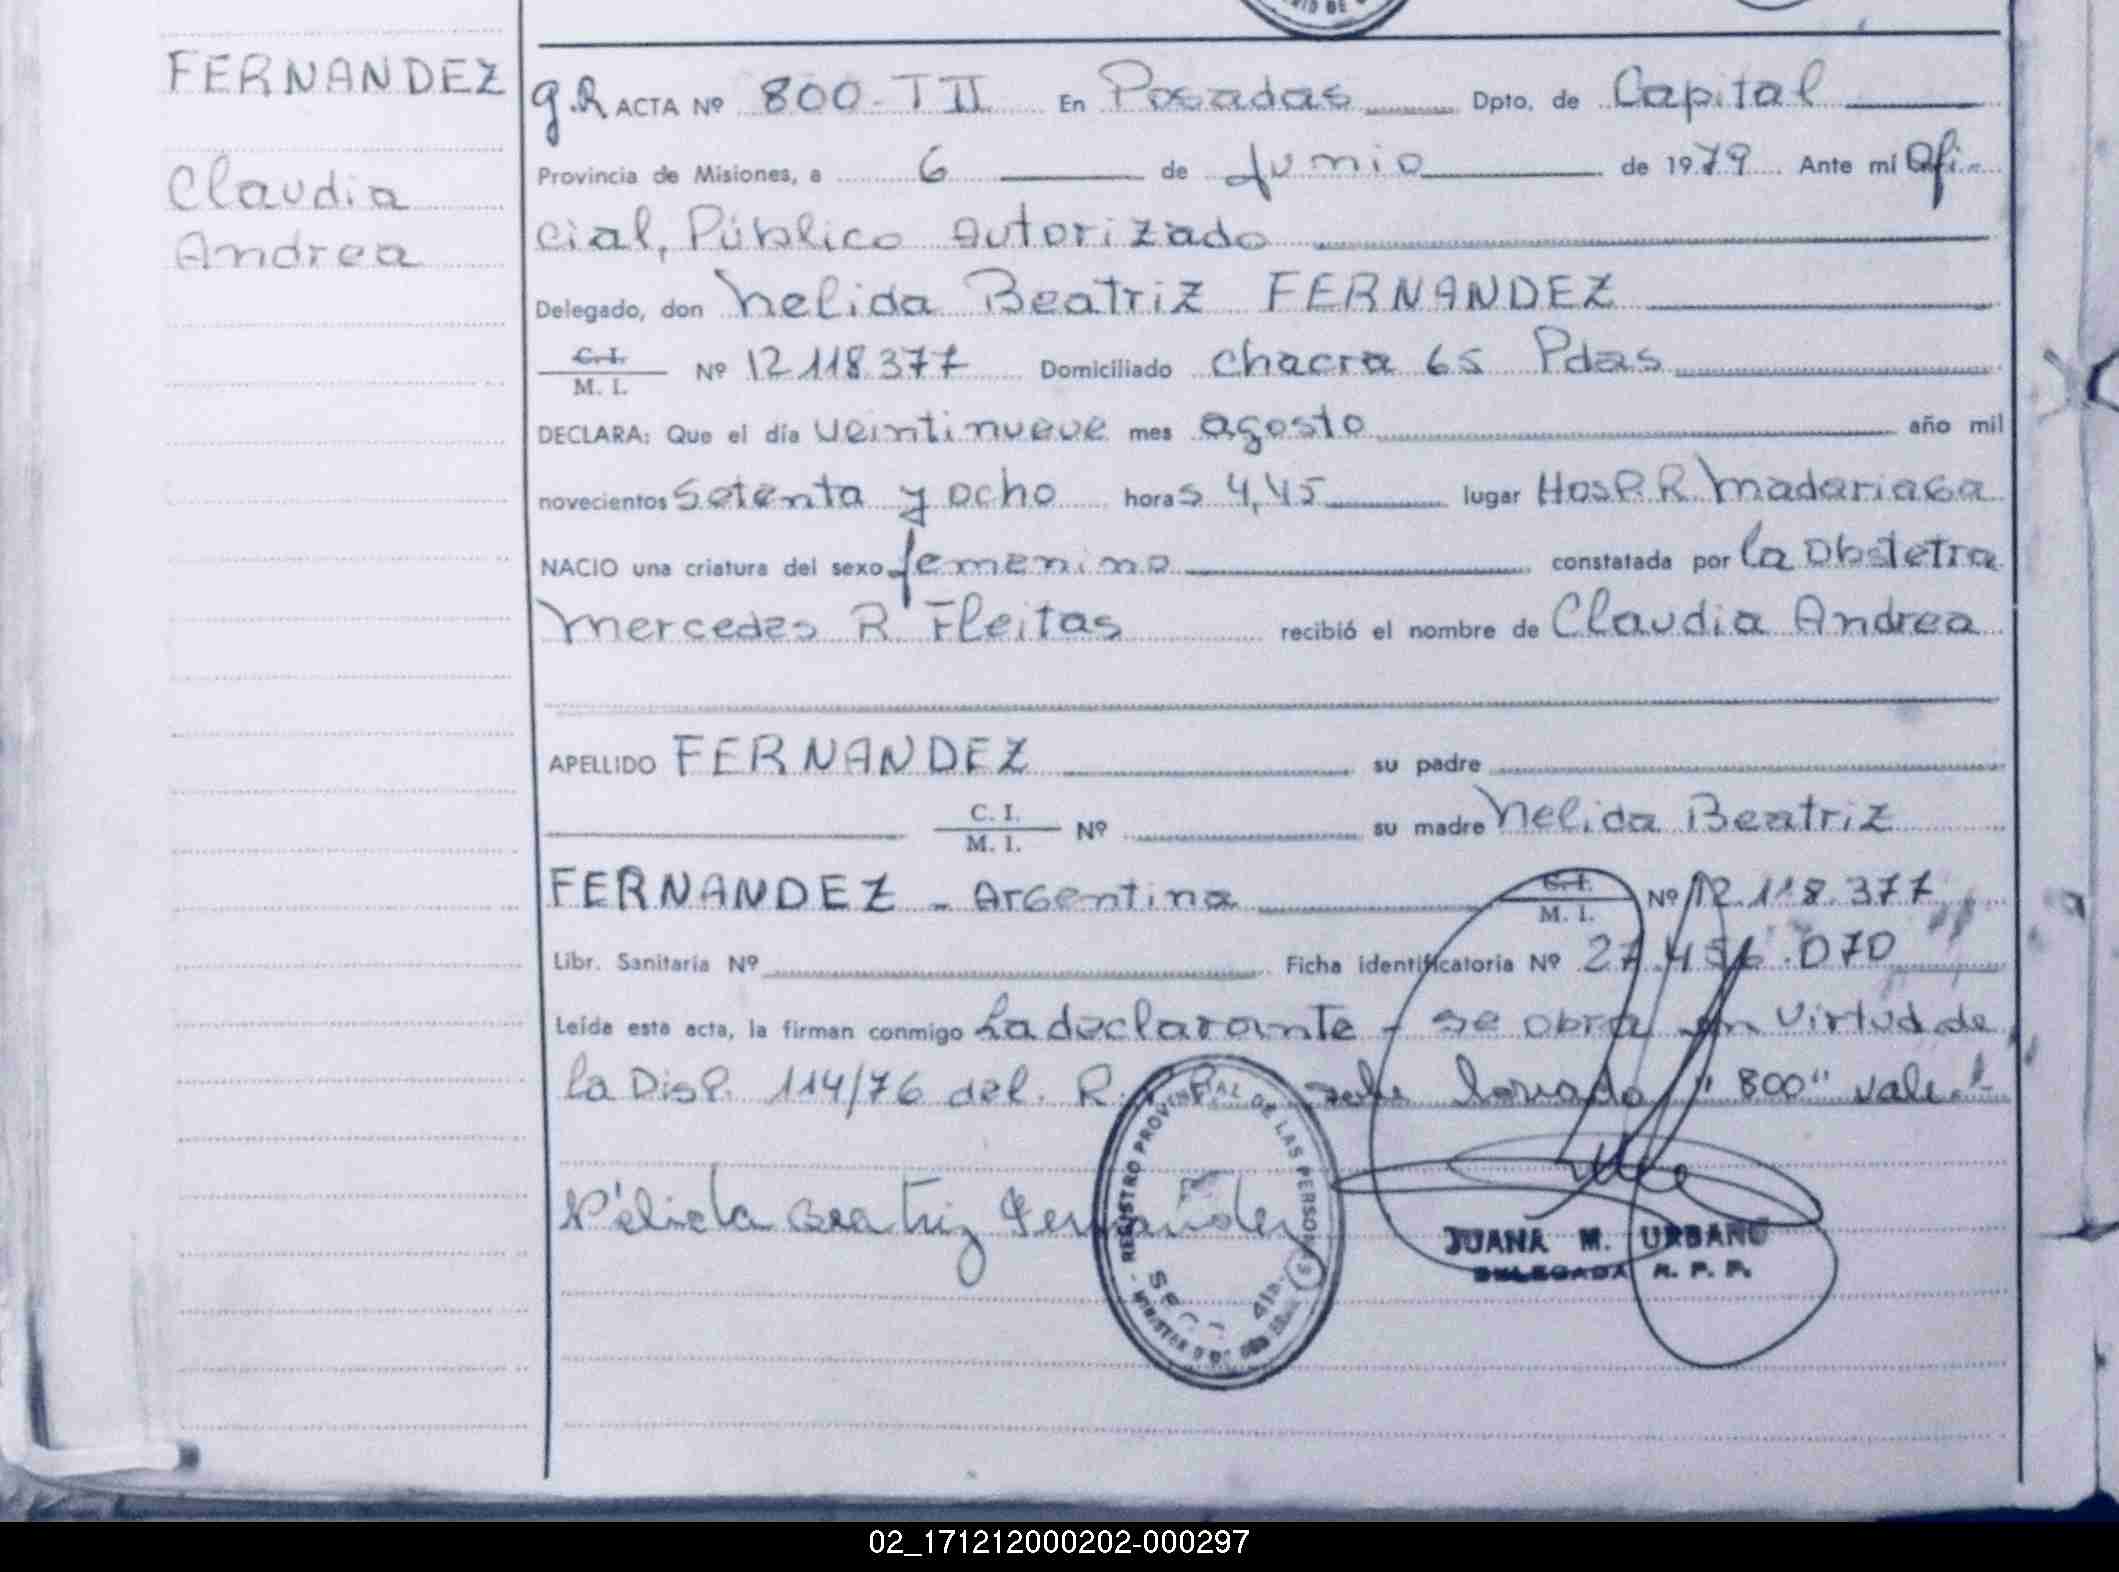 FERNANDEZ
Claudia
Andrea
g.R ACTA Nº 800-T II En Posadas Dpto. de Capital
Provincia de Misiones, a 6 de Junio de 1979 Ante mí Ofi-
cial, Público Autorizado
Delegado, don Nelida Beatriz FERNANDEZ
C. I. / M. I. Nº 12.118.377 Domiciliado Chacra 65 Pdas
DECLARA: Que el día veintinueve mes agosto año mil
novecientos setenta y ocho horas 4,45 lugar Hosp. R Madariaga
NACIO una criatura del sexo femenino constatada por la Obstetra
Mercedes R Fleitas recibió el nombre de Claudia Andrea
APELLIDO FERNANDEZ su padre
C. I. / M. I. Nº su madre Nelida Beatriz
FERNANDEZ - Argentina C. I. / M. I. Nº 12.118.377
Libr. Sanitaria Nº Ficha identificatoria Nº 27.456.070
Leída esta acta, la firman conmigo La declarante - se obra en virtud de
la Disp. 114/76 del. R. P. P. sobre borrado "800" vale.
Nélida Beatriz Fernandez
REGISTRO PROVINCIAL DE LAS PERSONAS
JUANA M. URBANO
DELEGADA R. P. P.
02_171212000202-000297